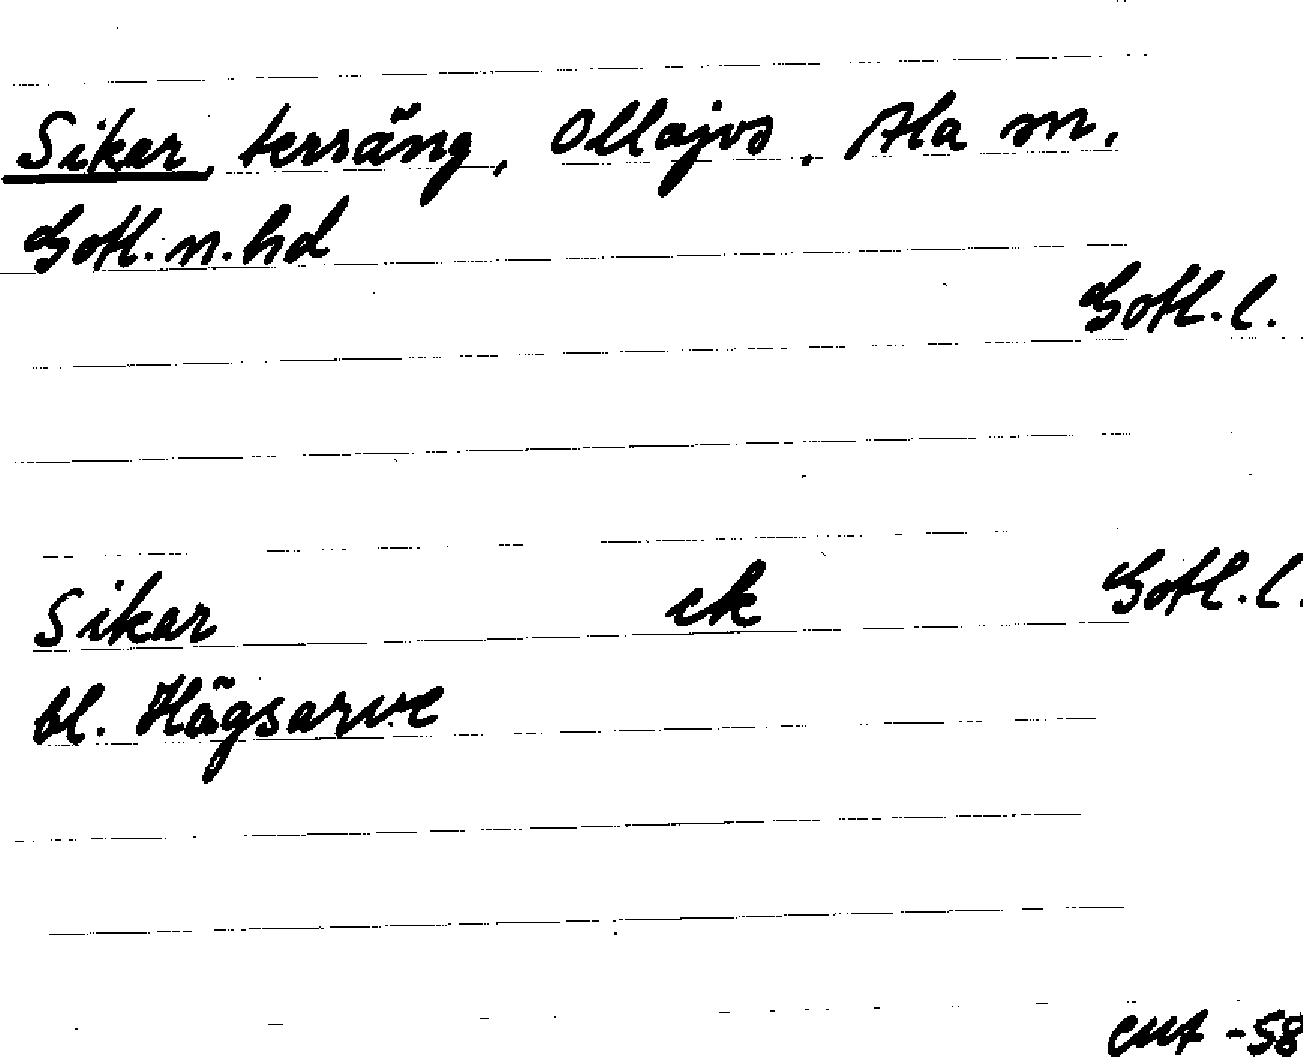 Sikar, terräng, Ollajvs, Ala sn.
Gotl. n. hd
Gotl. l.
Sikar ek Gotl. l.
bl. Hägsarve
-58